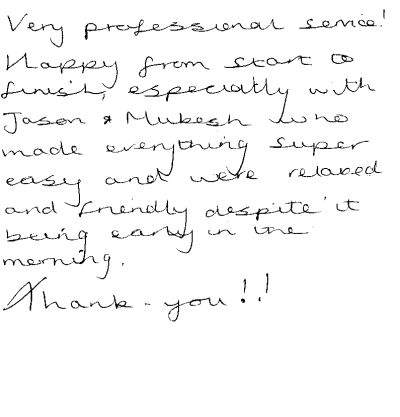 Very professional service!
Happy from start to
finish, especially with
Jason & Mukesh who
made everything super
easy and were relaxed
and friendly despite it
being early in the
morning.
Thank-you!!